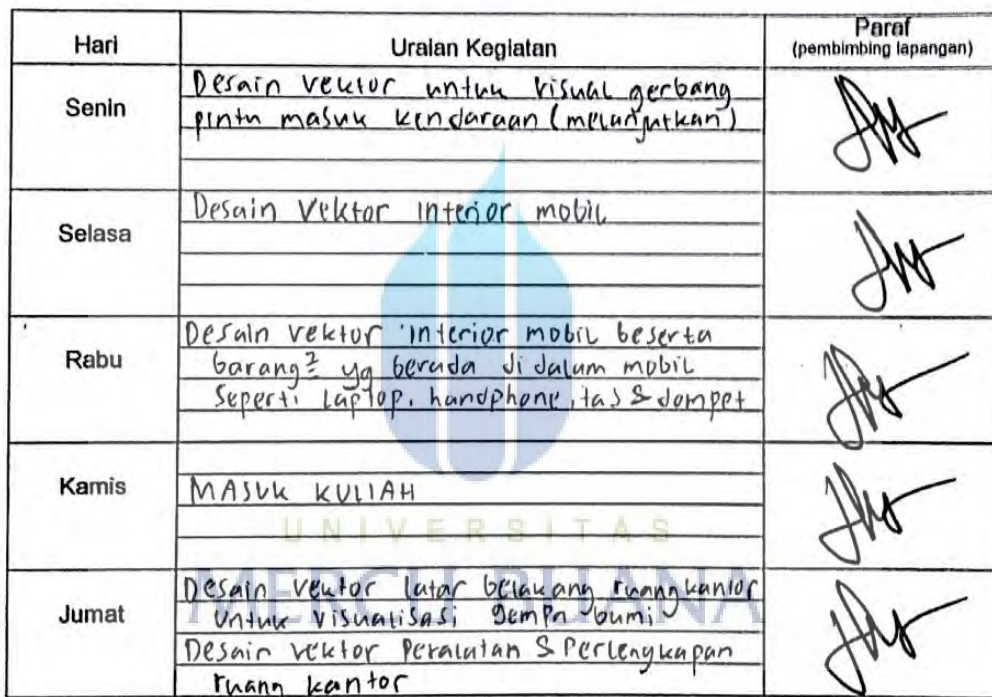 Hari
Uraian Kegiatan
Paraf
(pembimbing lapangan)
Senin
Desain vektor untuk visual gerbang
pintu masuk kendaraan (melanjutkan)
Selasa
Desain vektor interior mobil
Rabu
Desain vektor interior mobil beserta
barang² yg berada di dalam mobil
seperti laptop, handphone, tas & dompet
Kamis
MASUK KULIAH
UNIVERSITAS
MERCU BUANA
Jumat
Desain vektor latar belakang ruang kantor
untuk visualisasi gempa bumi
Desain vektor Peralatan & Perlengkapan
ruang kantor